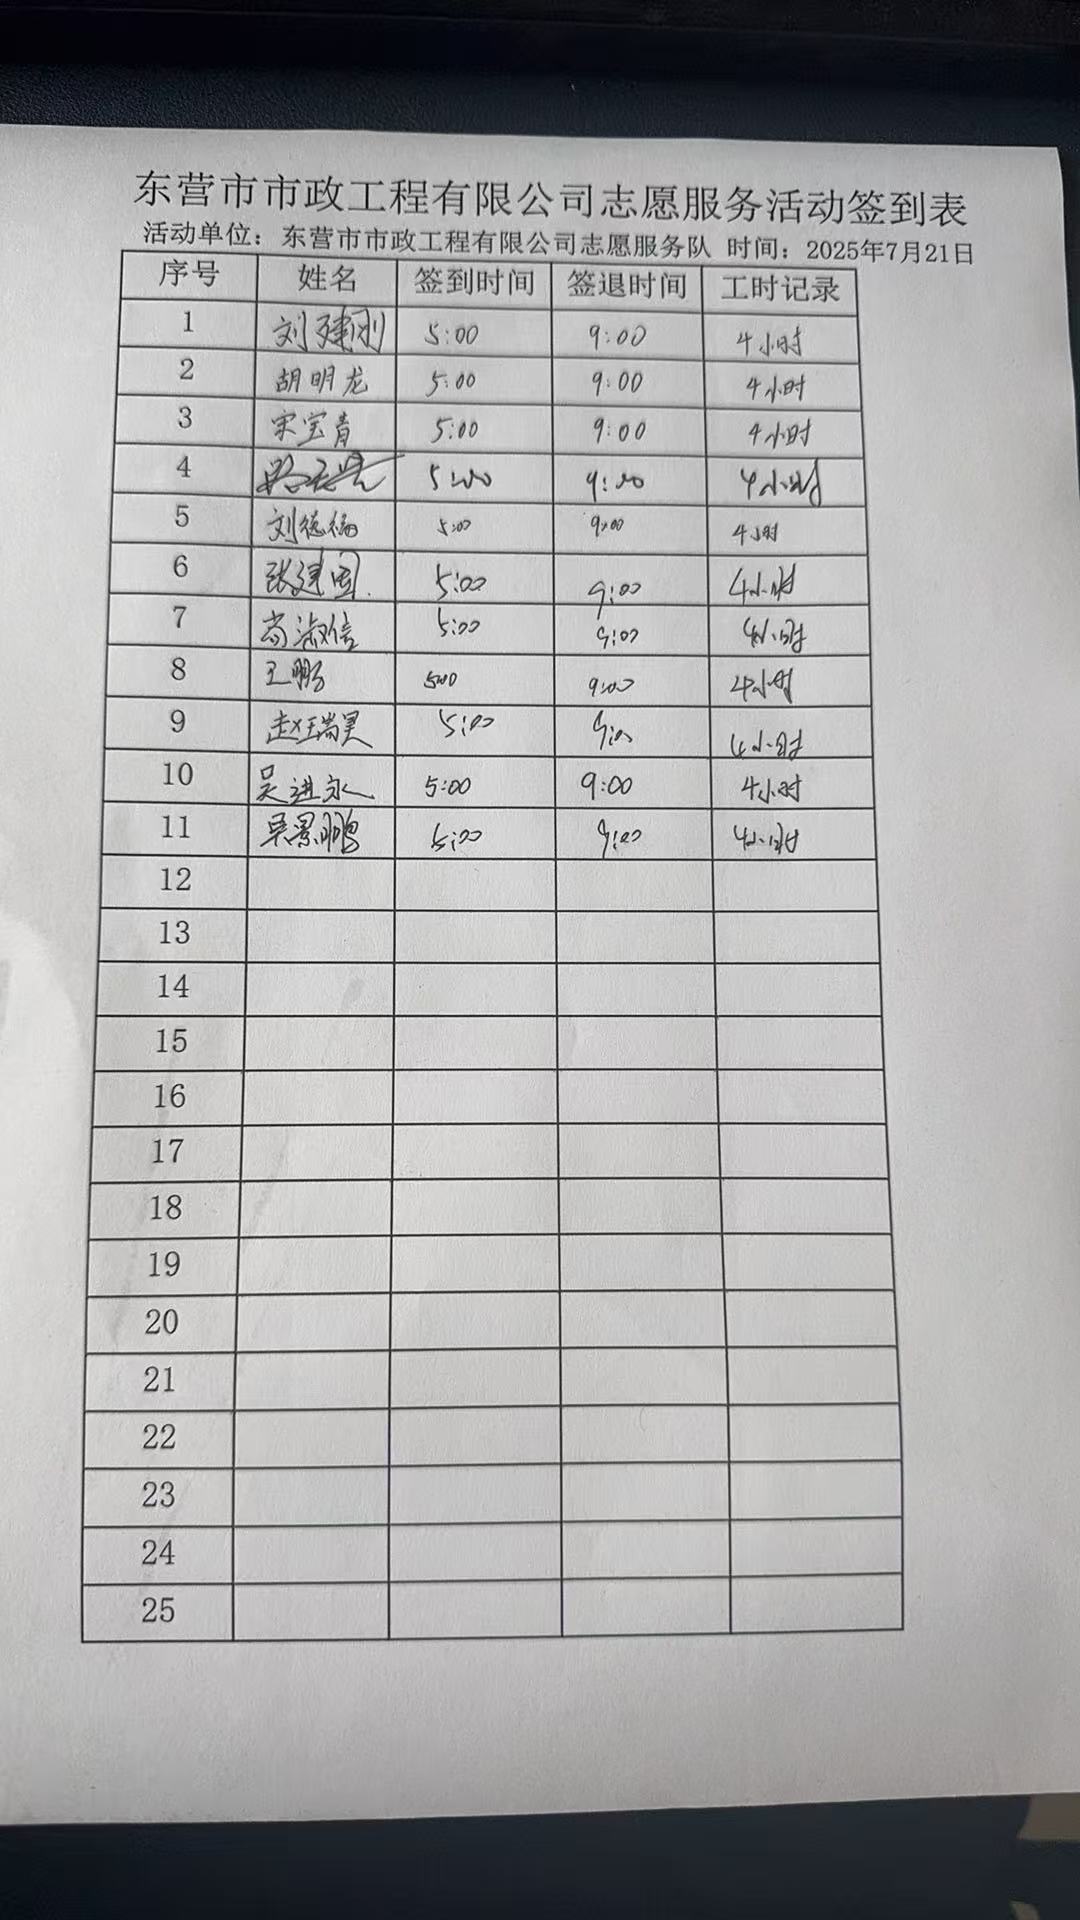 东营市市政工程有限公司志愿服务活动签到表
活动单位：东营市市政工程有限公司志愿服务队 时间：2025年7月21日
序号 姓名 签到时间 签退时间 工时记录
1 刘建刚 5:00 9:00 4小时
2 胡明龙 5:00 9:00 4小时
3 宋宝青 5:00 9:00 4小时
4 5:00 9:00 4小时
5 刘德福 5:00 9:00 4小时
6 张建国 5:00 9:00 4小时
7 尚淑信 5:00 9:00 4小时
8 王鹏 5:00 9:00 4小时
9 赵瑞昊 5:00 9:00 4小时
10 吴进永 5:00 9:00 4小时
11 吴景鹏 5:00 9:00 4小时
12
13
14
15
16
17
18
19
20
21
22
23
24
25